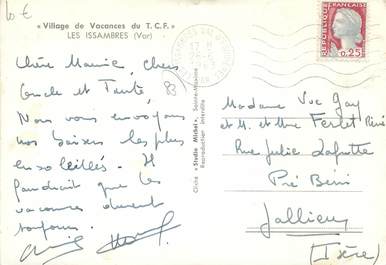 10 €
« Village de Vacances du T.C.F. »
LES ISSAMBRES (Var)
Chère Mamie, chers
Oncle et Tante
83
Nous vous envoyons
nos baisers les plus
ensoleillés. Il
faudrait que les
vacances durent
toujours.
Cliché « Studio Michel », Sainte-Maxime
Reproduction interdite
REPUBLIQUE FRANÇAISE
0,25
Madame Vve Gay
et M. et Mme Ferlet René
Rue Julie Lafutte
Pré Béni
Jallieu
(Isère)